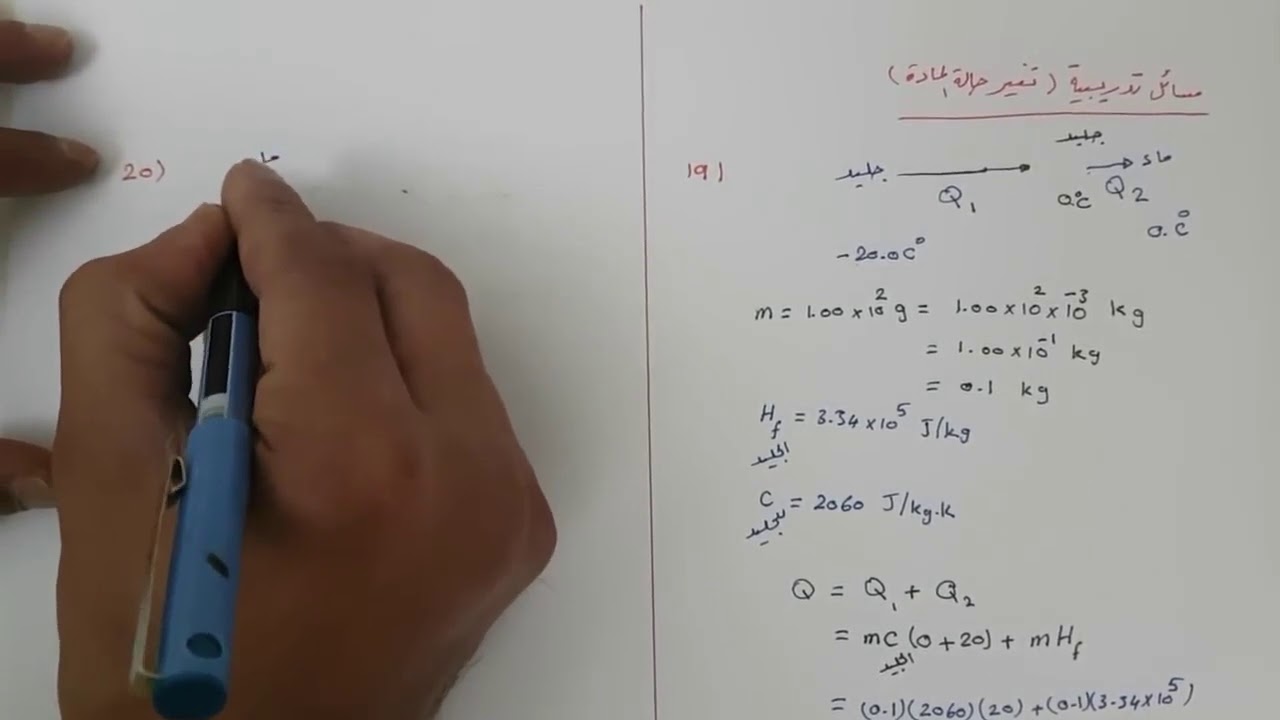 مسائل تدريبية (تغير حالة المادة)
19)
جليد
Q₁
جليد
ماء
0°C
Q₂
0.C°
-20.0C°
m = 1.00 × 10² g = 1.00 × 10² × 10⁻³ kg
= 1.00 × 10⁻¹ kg
= 0.1 kg
H_f = 3.34 × 10⁵ J/kg
الجليد
C = 2060 J/kg.K
للجليد
Q = Q₁ + Q₂
= mC (0 + 20) + mH_f
الجليد
= (0.1)(2060)(20) + (0.1)(3.34 × 10⁵)
20)
ما